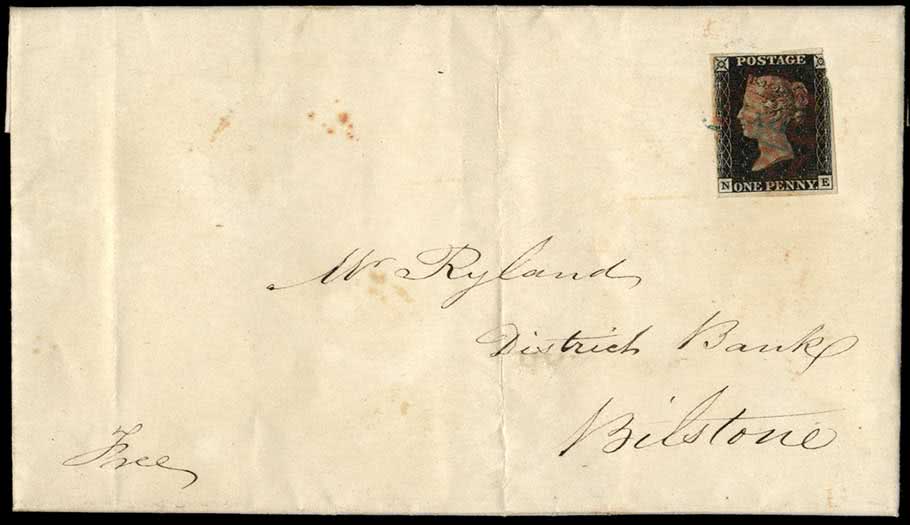 POSTAGE
N ONE PENNY. E
Mr Ryland
District Bank
Bilstone
Free